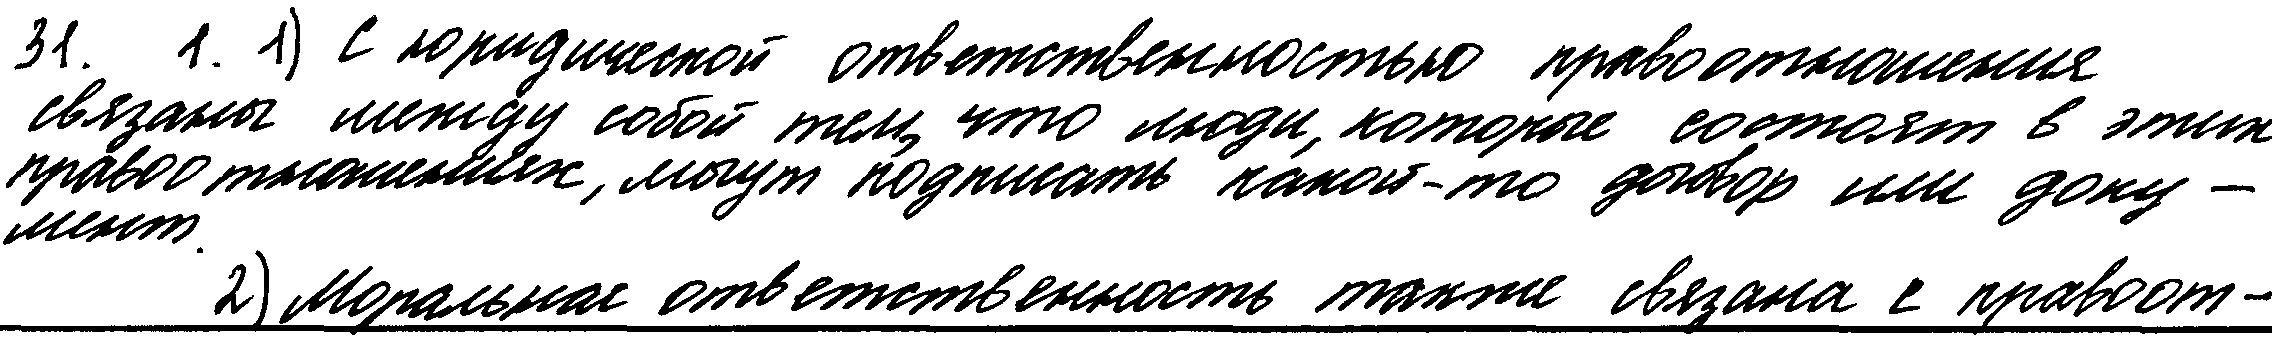 31. 1. 1) С юридической ответственностью правоотношения
связаны между собой тем, что люди, которые состоят в этих
правоотношениях, могут подписать какой-то договор или доку-
мент.
2) Моральная ответственность также связана с правоот-